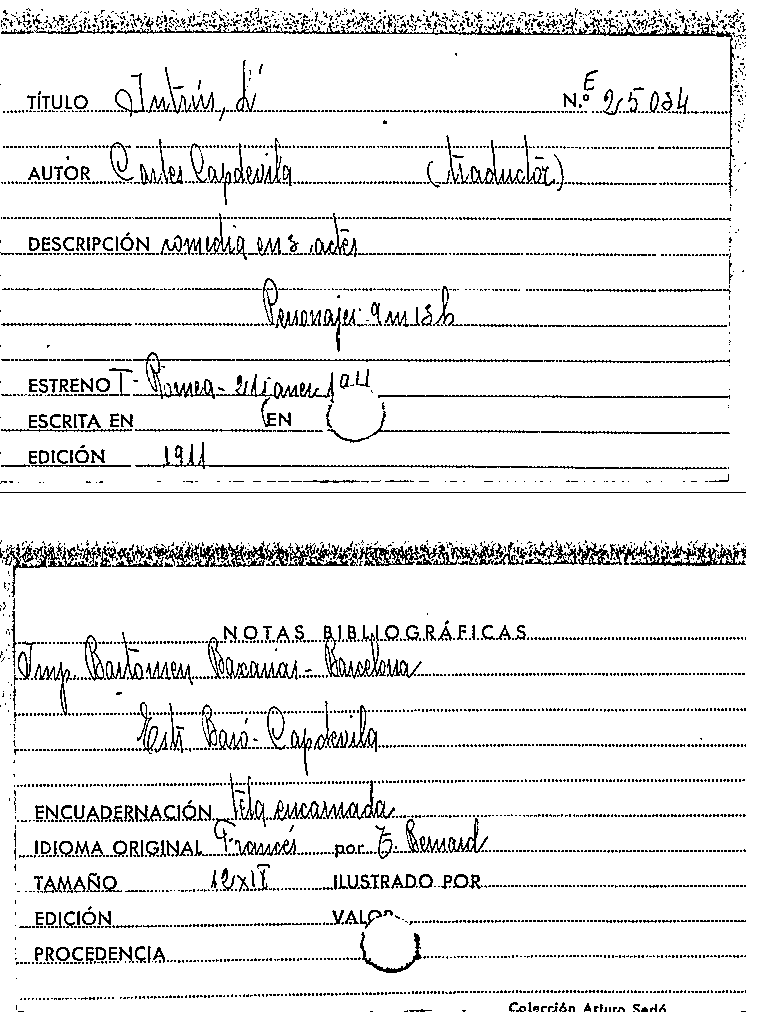 TÍTULO Intrús, L' N.º E 25 034
AUTOR Carles Capdevila (traductor)
DESCRIPCIÓN comedia en 3 actes
Personajes 9 m 13 h
ESTRENO T. Romea - janer
ESCRITA EN EN
EDICIÓN 1911
NOTAS BIBLIOGRÁFICAS
Imp. Bartomeu Baxarias - Barcelona
Estr. Baró - Capdevila
ENCUADERNACIÓN tela encarnada
IDIOMA ORIGINAL Francés por T. Bernard
TAMAÑO ILUSTRADO POR
EDICIÓN VALOR
PROCEDENCIA
Colección Arturo Sedó